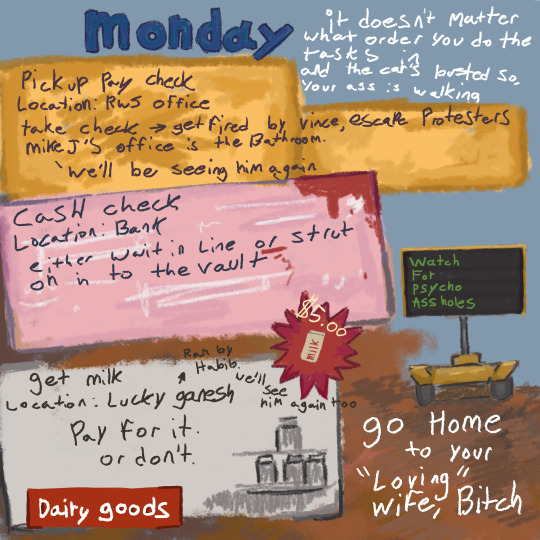 monday
it doesn't matter
what order you do the
tasks in
and the car's busted so,
your ass is walking
Pick up Pay check
Location: RWS office
take check → get fired by vince, escape Protesters
mike J'S office is the Bathroom.
we'll be seeing him again
CasH check
Location: Bank
either wait in Line or strut
on in to the vault
Watch
For
psycho
Assholes
$5.00
milk
get milk
Ran by
Habib.
we'll
see
him again too
Location: Lucky ganesh
Pay for it.
or don't.
Dairy goods
go Home
to your
"Loving"
wife, Bitch